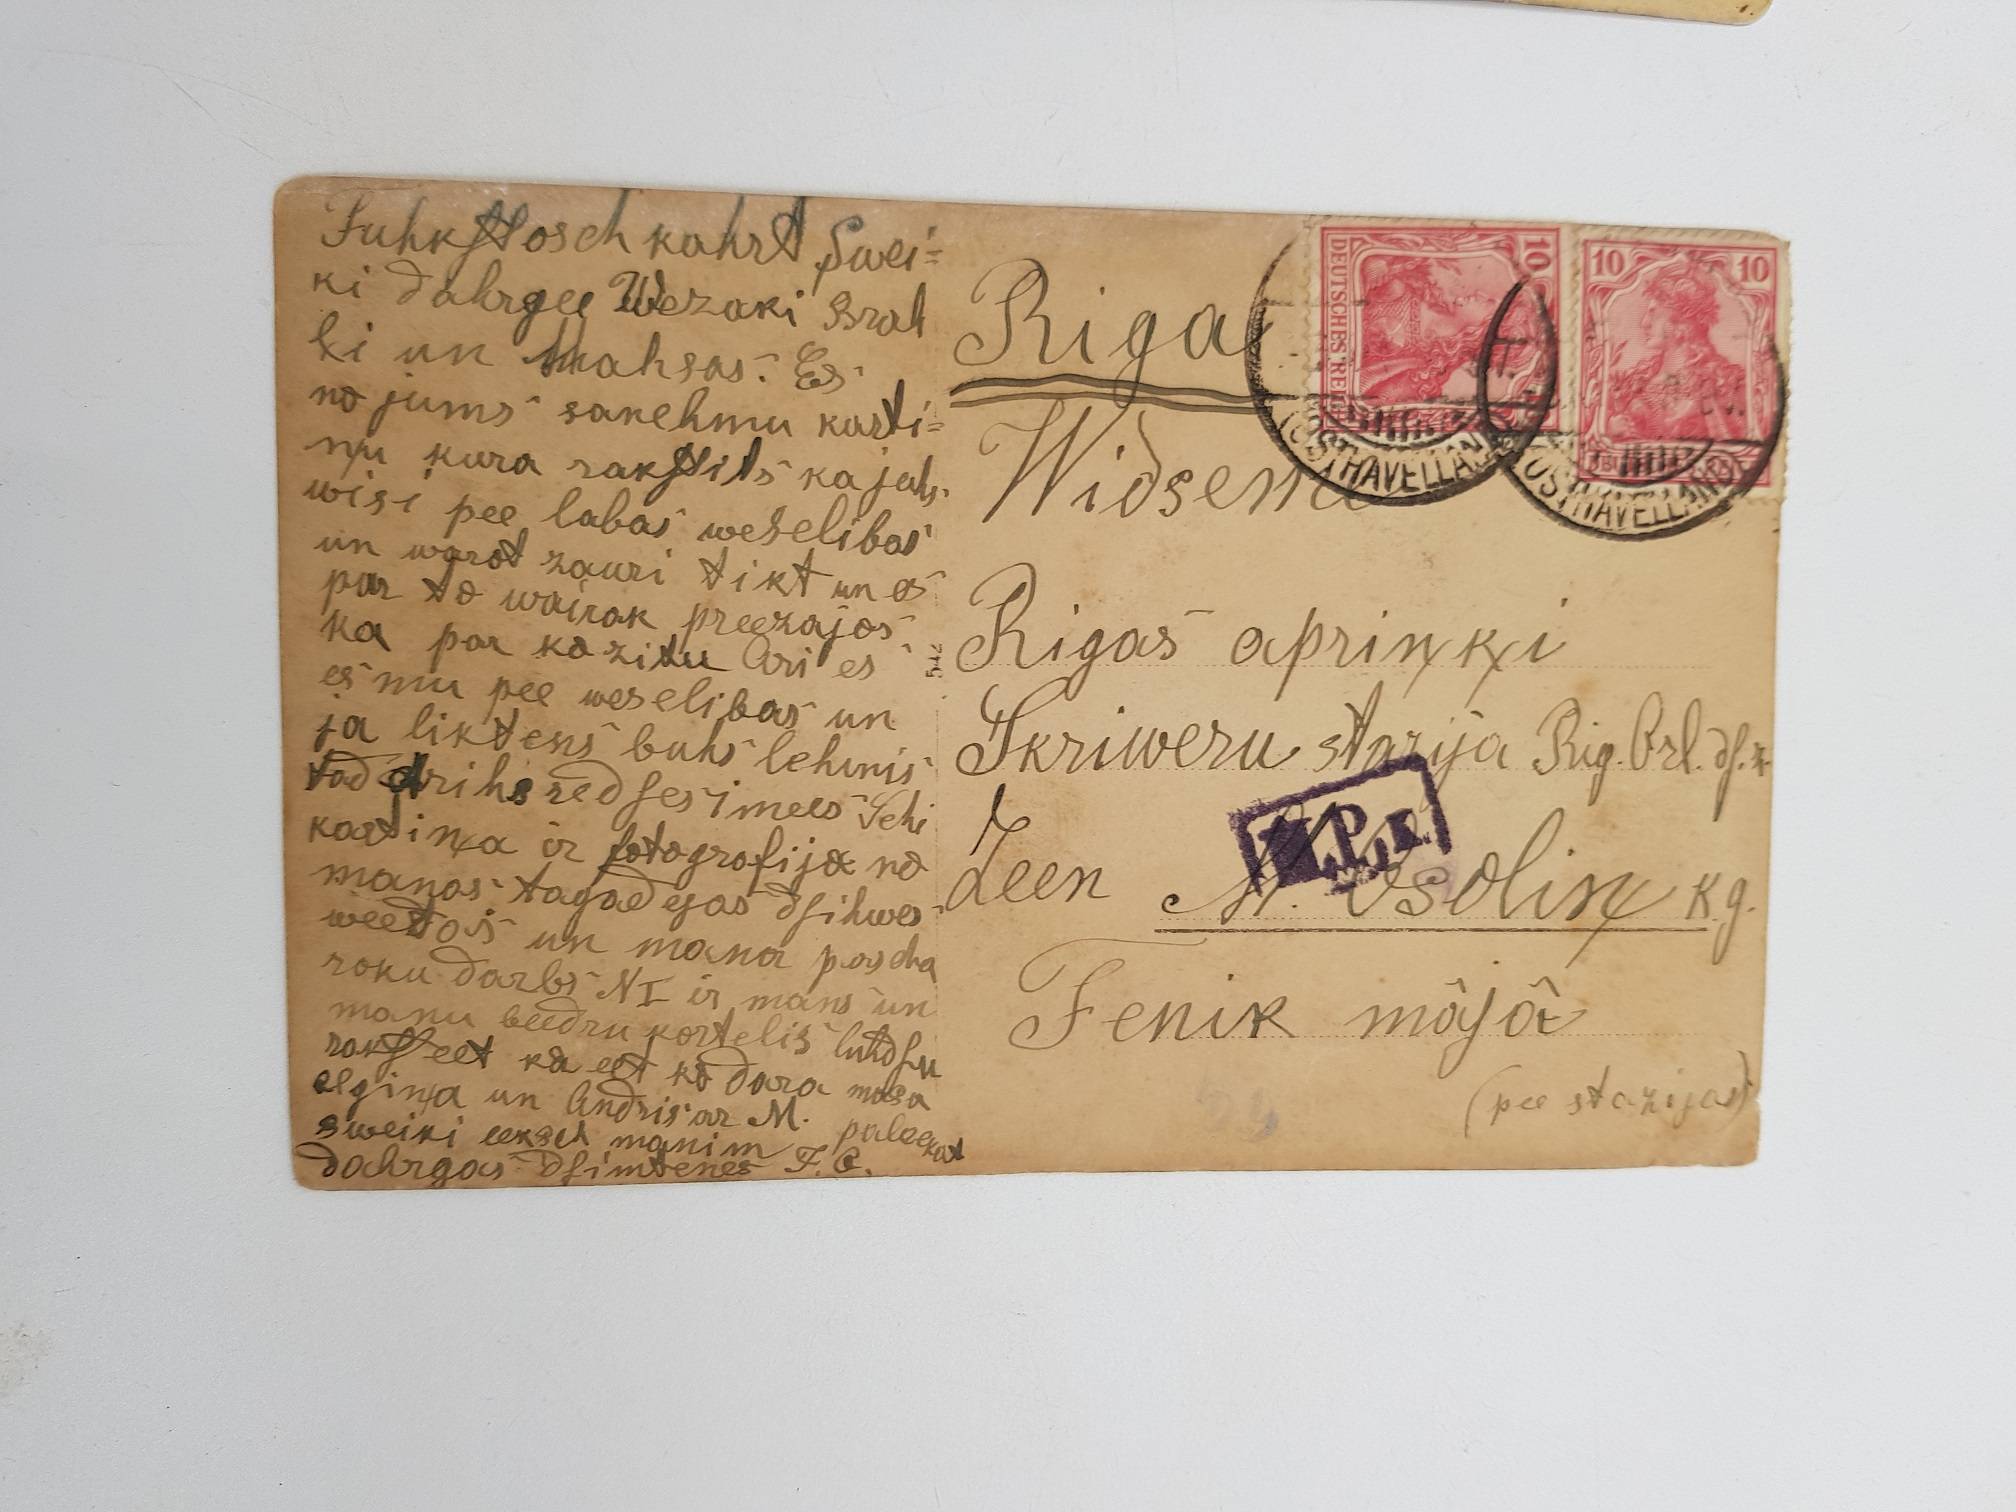 Tuhkstosch kahrt Swei=
ki dahrgee Wezaki Brah
ļi un Mahsas. Es
no jums sanehmu karti=
ņu kura rakstits ka jahs
wisi pee labas weselibas
un warot zauri tikt un es
par to wairak preezajos
ka par ko zitu Ari es
esmu pee weselibas un
ja liktens buhs lehmis
tad drihs redsesimees Schi
kartiņa ir fotografija no
manas tagadejas dsihwes
weetas un mana pascha
roku darbs NI ir mans un
manu beedru kortelis luhdsu
raksteet ka eet ko dara masa
elgiņa un Andris ar M.
sweiki eeksch manim paleekat
dahrgas Dsimtenes F. O.
542
Riga
Widseme
Rigas apriņķi
Skriweru stazija Rig. Orl. ds. z.
Zeen M. Osoliņ kg.
Fenik mâjâ
(pee stazijas)
DEUTSCHES REICH
10
10 10
(OSTHAVELLAND)
(OSTHAVELLAND)